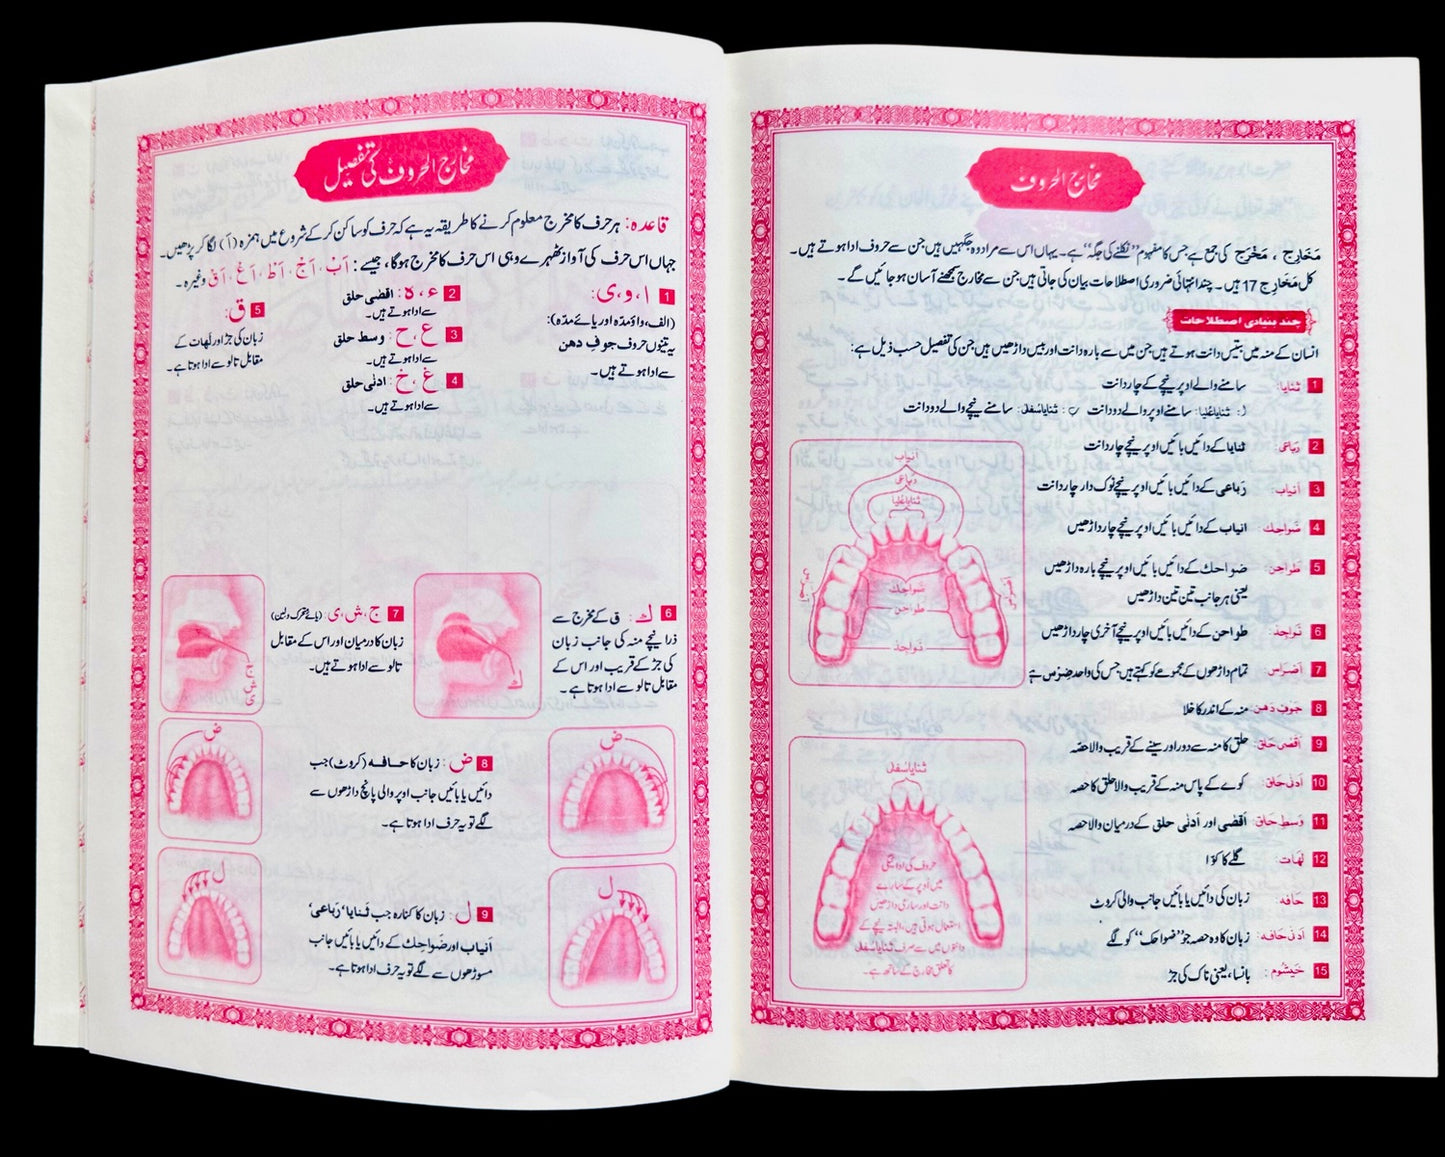 مخارج الحروف
مَخَارِج ، مَخْرَج کی جمع ہے جس کا مفہوم ”نکلنے کی جگہ“ ہے۔ یہاں اس سے مراد وہ جگہیں ہیں جن سے حروف ادا ہوتے ہیں۔
کل مَخَارِج 17 ہیں۔ چند انتہائی ضروری اصطلاحات بیان کی جاتی ہیں جن سے مخارج سمجھنے آسان ہو جائیں گے۔
چند بنیادی اصطلاحات
انسان کے منہ میں بتیس دانت ہوتے ہیں جن میں سے بارہ دانت اور بیس داڑھیں ہیں جن کی تفصیل حسب ذیل ہے:
1 ثَنایا: سامنے والے اوپر نیچے کے چار دانت
ا: ثنایا عُلیا: سامنے اوپر والے دو دانت ب: ثنایا سُفلیٰ: سامنے نیچے والے دو دانت
2 رَباعی: ثنایا کے دائیں بائیں اوپر نیچے چار دانت
3 اَنیاب: رَباعی کے دائیں بائیں اوپر نیچے نوک دار چار دانت
4 ضَواحِك: انیاب کے دائیں بائیں اوپر نیچے چار داڑھیں
5 طَواحِن: ضواحك کے دائیں بائیں اوپر نیچے بارہ داڑھیں
یعنی ہر جانب تین تین داڑھیں
6 نَواجِذ: طواحن کے دائیں بائیں اوپر نیچے آخری چار داڑھیں
7 اَضراس: تمام داڑھوں کے مجموعے کو کہتے ہیں جس کی واحد ضِرْس ہے
8 جَوفِ دَهن: منہ کے اندر کا خلا
9 اَقصٰی حَلق: حلق کا منہ سے دور اور سینے کے قریب والا حصہ
10 اَدنٰی حَلق: کوے کے پاس منہ کے قریب والا حلق کا حصہ
11 وَسطِ حَلق: اَقصٰی اور اَدنٰی حلق کے درمیان والا حصہ
12 لَهات: گلے کا کوّا
13 حَافه: زبان کی دائیں یا بائیں جانب والی کروٹ
14 اَدنٰی حَافه: زبان کا وہ حصہ جو ”ضواحك“ کو لگے
15 خَيشُوم: بانسا، یعنی ناک کی جڑ
انیاب
رباعی
ثنایا علیا
ضواحك
طواحن
نواجذ
ثنایا سفلیٰ
حروف کی ادائیگی
میں اوپر کے سارے
دانت اور ساری داڑھیں
استعمال ہوتی ہیں، البتہ نیچے کے
دانتوں میں سے صرف ثنایا سفلیٰ
کا تعلق مخارج کے ساتھ ہے۔
مخارج الحروف کی تفصیل
قاعدہ: ہر حرف کا مخرج معلوم کرنے کا طریقہ یہ ہے کہ حرف کو ساکن کر کے شروع میں ہمزہ (اَ) لگا کر پڑھیں۔
جہاں اس حرف کی آواز ٹھہرے وہی اس حرف کا مخرج ہوگا، جیسے: اَبْ، اَجْ، اَطْ، اَغْ، اَقْ وغیرہ۔
1 ا، و، ی:
(الف، واؤ مدّہ اور یائے مدّہ):
یہ تینوں حروف جوفِ دهن
سے ادا ہوتے ہیں۔
2 ء، ہ: اقصٰی حلق
سے ادا ہوتے ہیں۔
3 ع، ح: وسط حلق
سے ادا ہوتے ہیں۔
4 غ، خ: ادنٰی حلق
سے ادا ہوتے ہیں۔
5 ق:
زبان کی جڑ اور لَهات کے
مقابل تالو سے ادا ہوتا ہے۔
6 ك: ق کے مخرج سے
ذرا نیچے منہ کی جانب زبان
کی جڑ کے قریب اور اس کے
مقابل تالو سے ادا ہوتا ہے۔
ك
7 ج، ش، ی: (یائے متحرک و لین)
زبان کا درمیان اور اس کے مقابل
تالو سے ادا ہوتے ہیں۔
ج
ش
ی
8 ض: زبان کا حافه (کروٹ) جب
دائیں یا بائیں جانب اوپر والی پانچ داڑھوں سے
لگے تو یہ حرف ادا ہوتا ہے۔
ض
ض
9 ل: زبان کا کنارہ جب ثنایا، رَباعی،
اَنیاب اور ضَواحِك کے دائیں یا بائیں جانب
مسوڑھوں سے لگے تو یہ حرف ادا ہوتا ہے۔
ل
ل